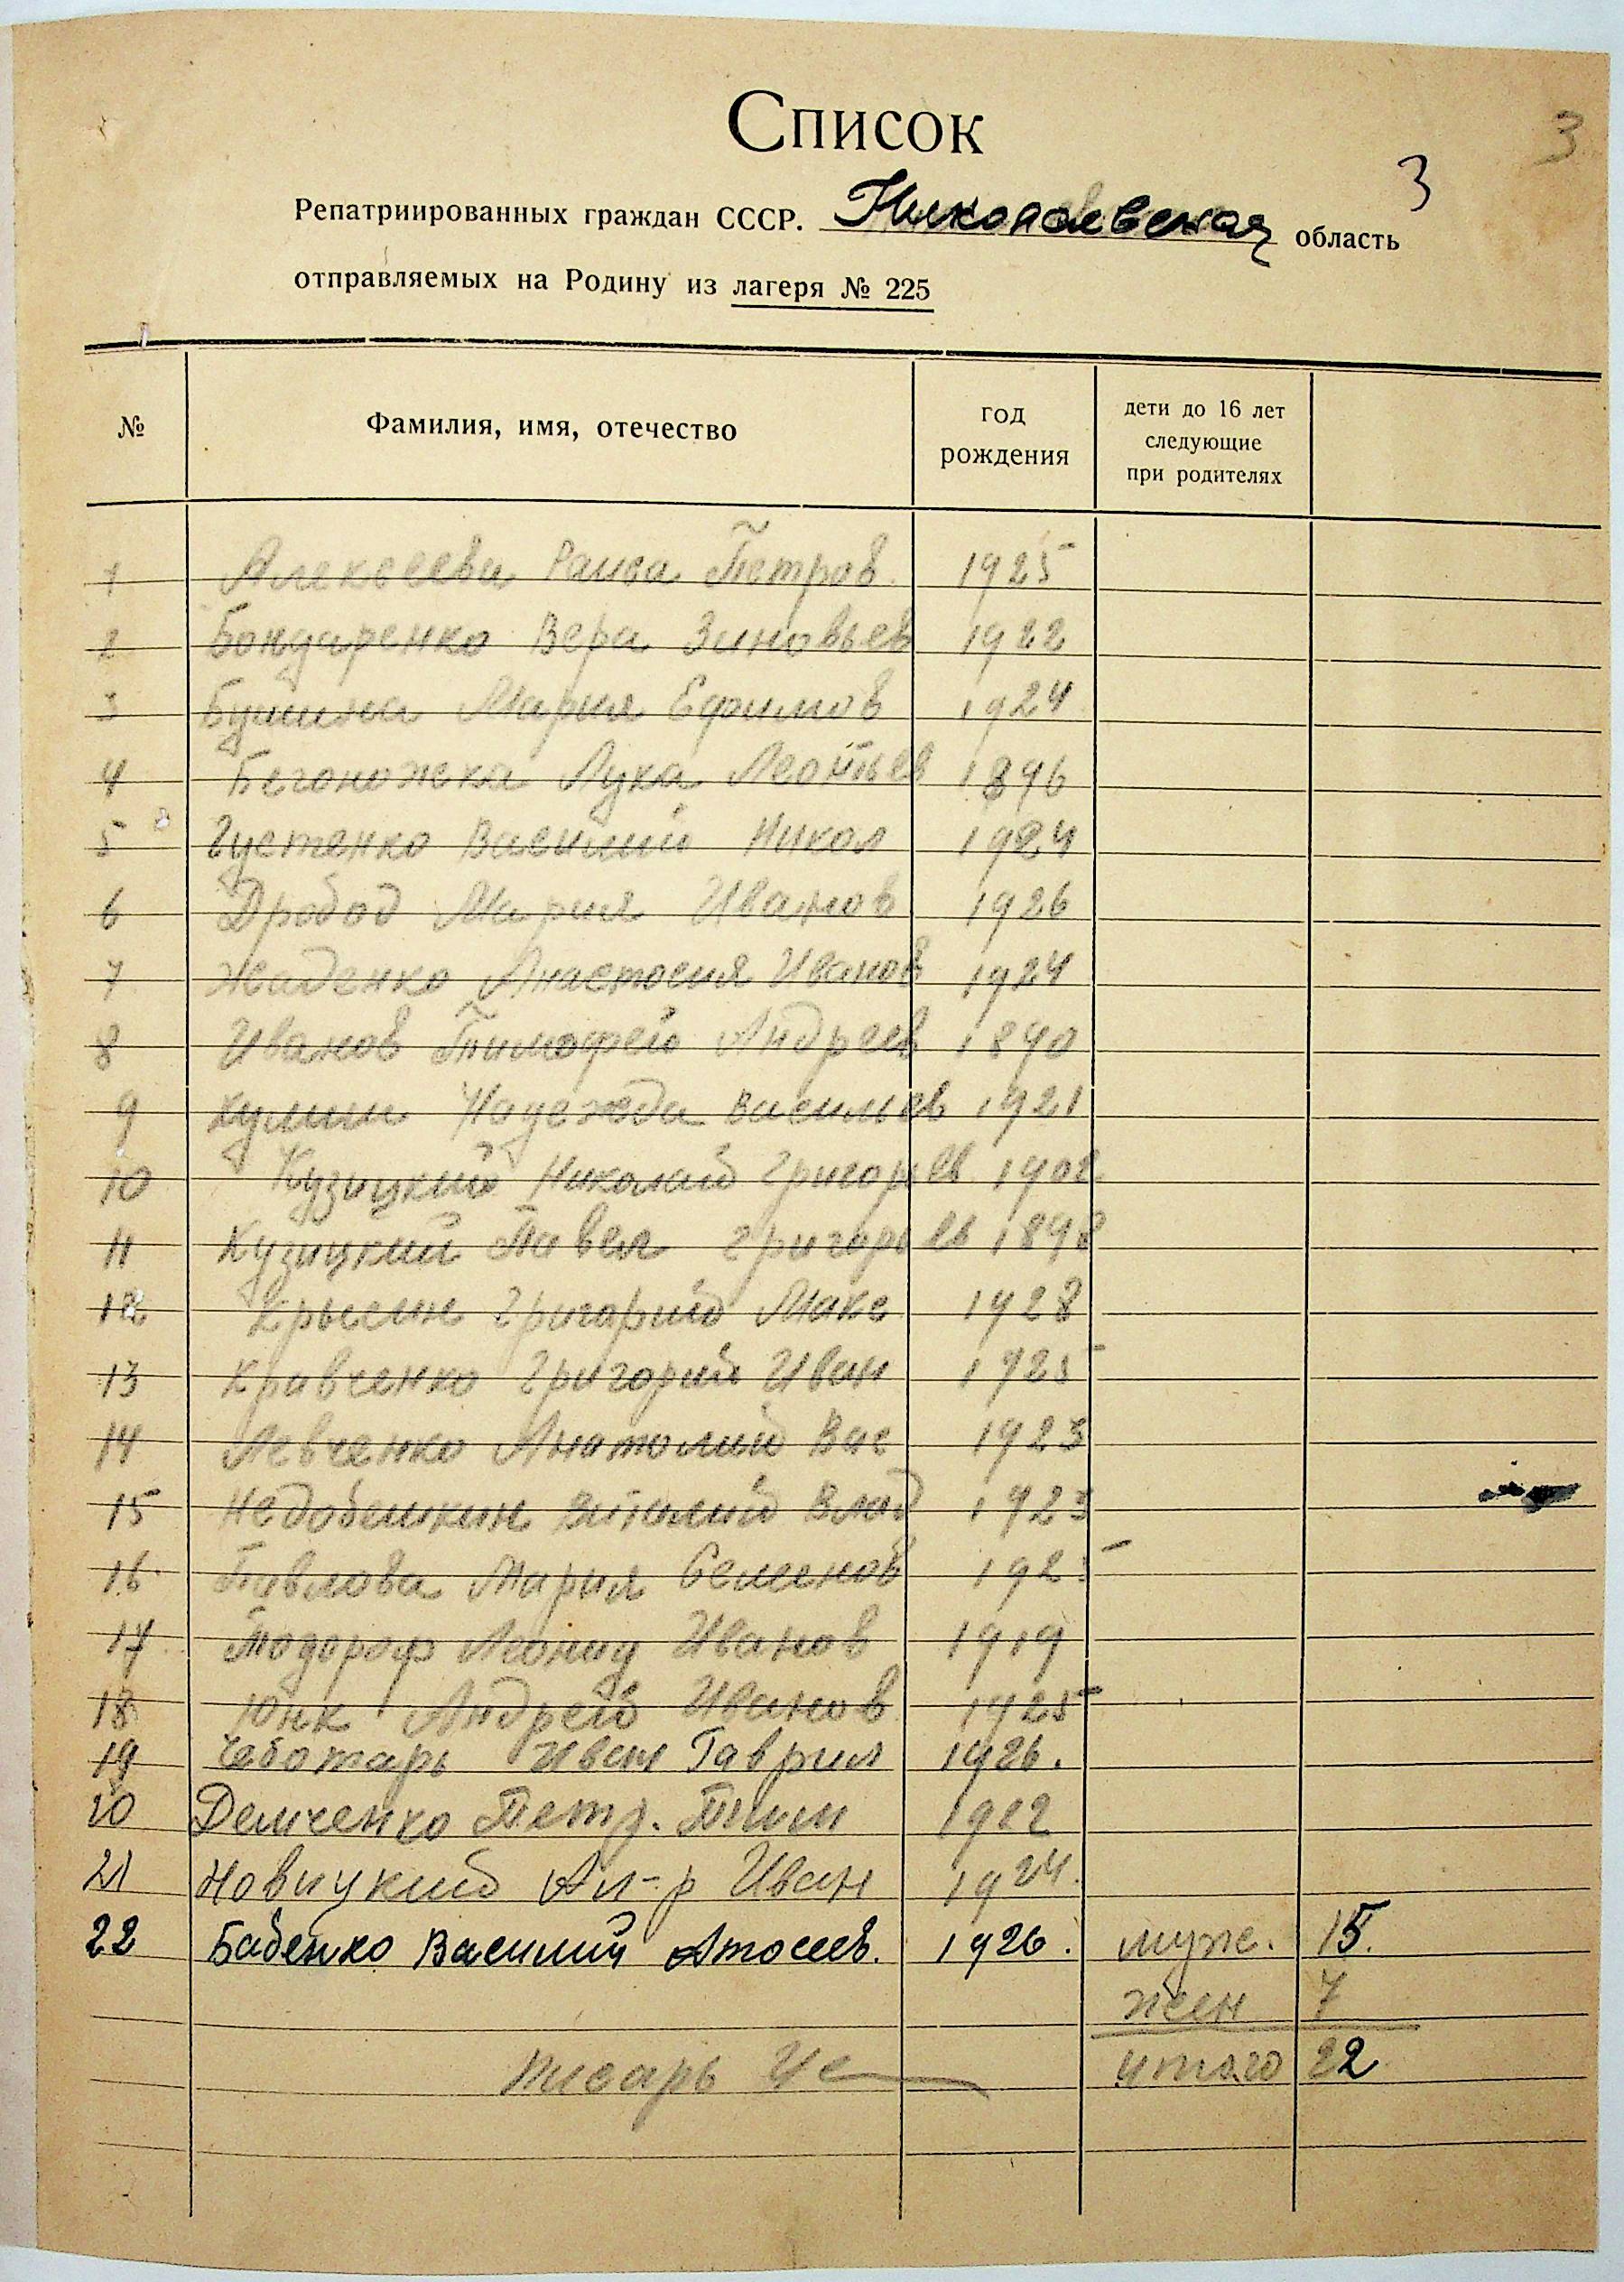 3
Список
3
Репатриированных граждан СССР. Николаевская область
отправляемых на Родину из лагеря № 225
№ Фамилия, имя, отчество год рождения дети до 16 лет следующие при родителях
1 Алексеева Раиса Петров. 1925
2 Бондаренко Вера Зиновьев 1922
3 Бушина Мария Ефимов 1924
4 Бегоножка Лука Леонтьев 1896
5 Густенко Василий Никол 1924
6 Дробод Мария Иванов 1926
7 Жаденко Анастосия Иванов 1924
8 Иванов Тимофей Андреев 1890
9 Надежда Васильев 1921
10 Кузицкий Николай Григорьев 1902
11 Кузицкий Павел Григорьев 1898
12 Крысин Григорий Макс 1928
13 Кравченко Григорий Иван 1925
14 Левченко Анатолий Вас 1923
15 Недобешкин Виталий Влад 1923
16 Павлова Мария Семенов 1925
17 Тодороф Леонид Иванов 1919
18 Юнк Андрей Иванов 1925
19 Чеботарь Иван Гаврил 1926.
20 Демченко Петр. Тим 1922
21 Новицкий Ал-р Иван 1924.
22 Бабенко Василий 1926. муж. 15.
жен 7
Писарь итого 22